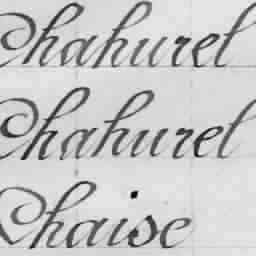 Chahurel
Chahurel
Chaise